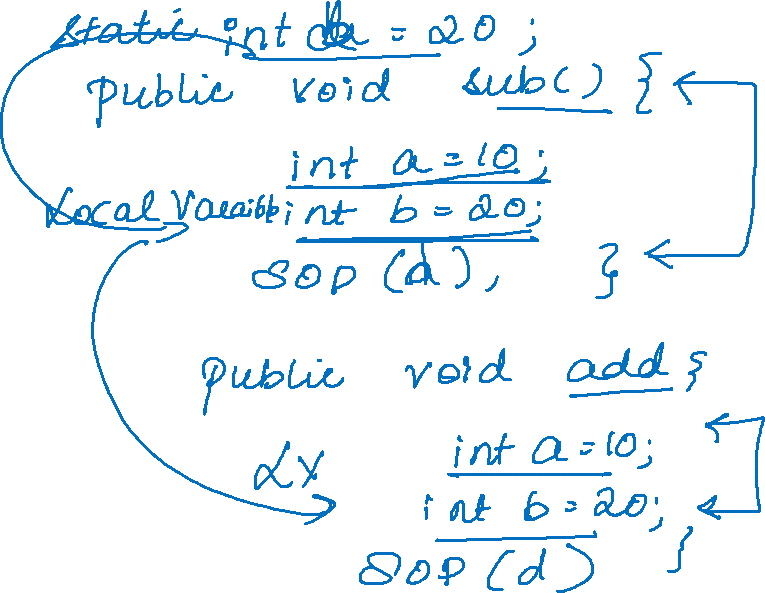 static int d = 20 ;
public void sub() {
int a = 10 ;
Local Varaible int b = 20;
SOP (d), }
public void add {
int a = 10;
LX
int b = 20;
SOP (d) }